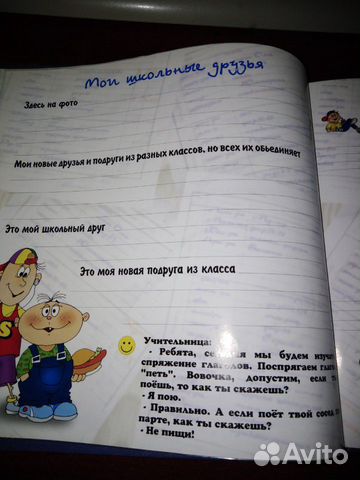 Мои школьные друзья
Здесь на фото
Мои новые друзья и подруги из разных классов, но всех их объединяет
Это мой школьный друг
Это моя новая подруга из класса
Учительница:
- Ребята, мы будем
спряжение глаголов. Поспрягаем
"петь". Вовочка, допустим, если
поёшь, то как ты скажешь?
- Я пою.
- Правильно. А если поёт твой сосед
парте, как ты скажешь?
- Не пищи!
S
Avito